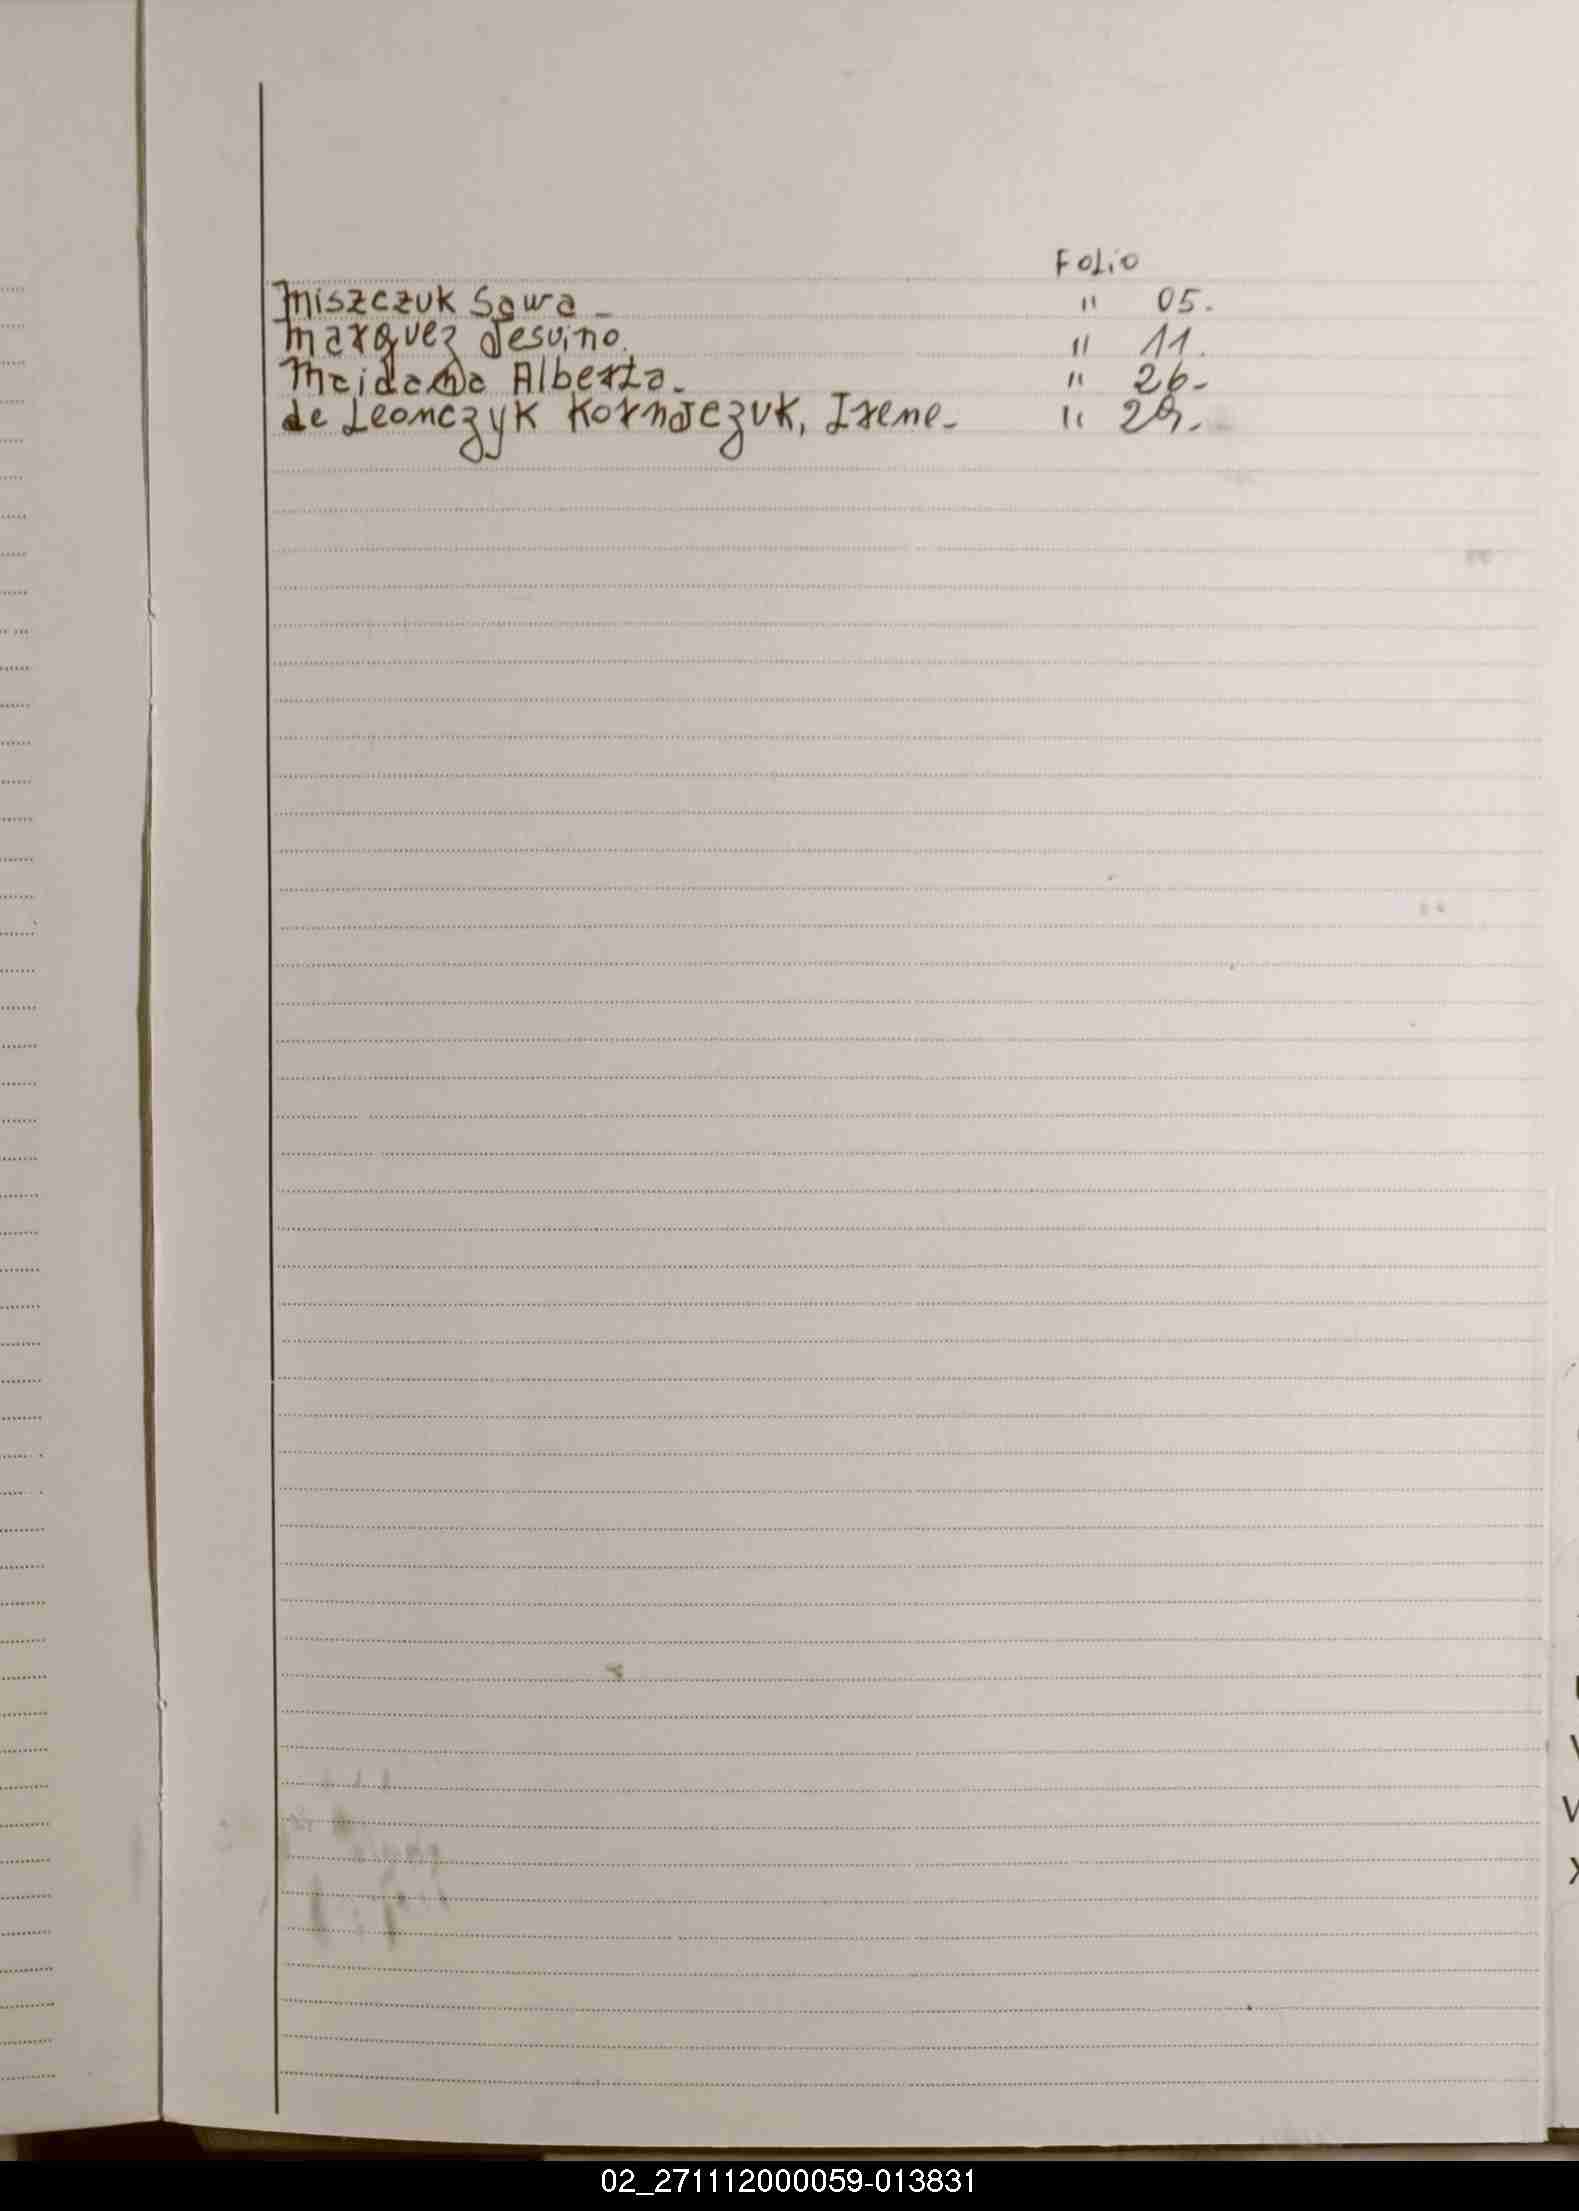 Folio
Miszczuk Sawa - " 05.
Marquez Jesuino. " 11.
Maidana Alberta. " 26-
de Leonczyk Kornejczuk, Irene- " 29.
V
W
X
02_271112000059-013831